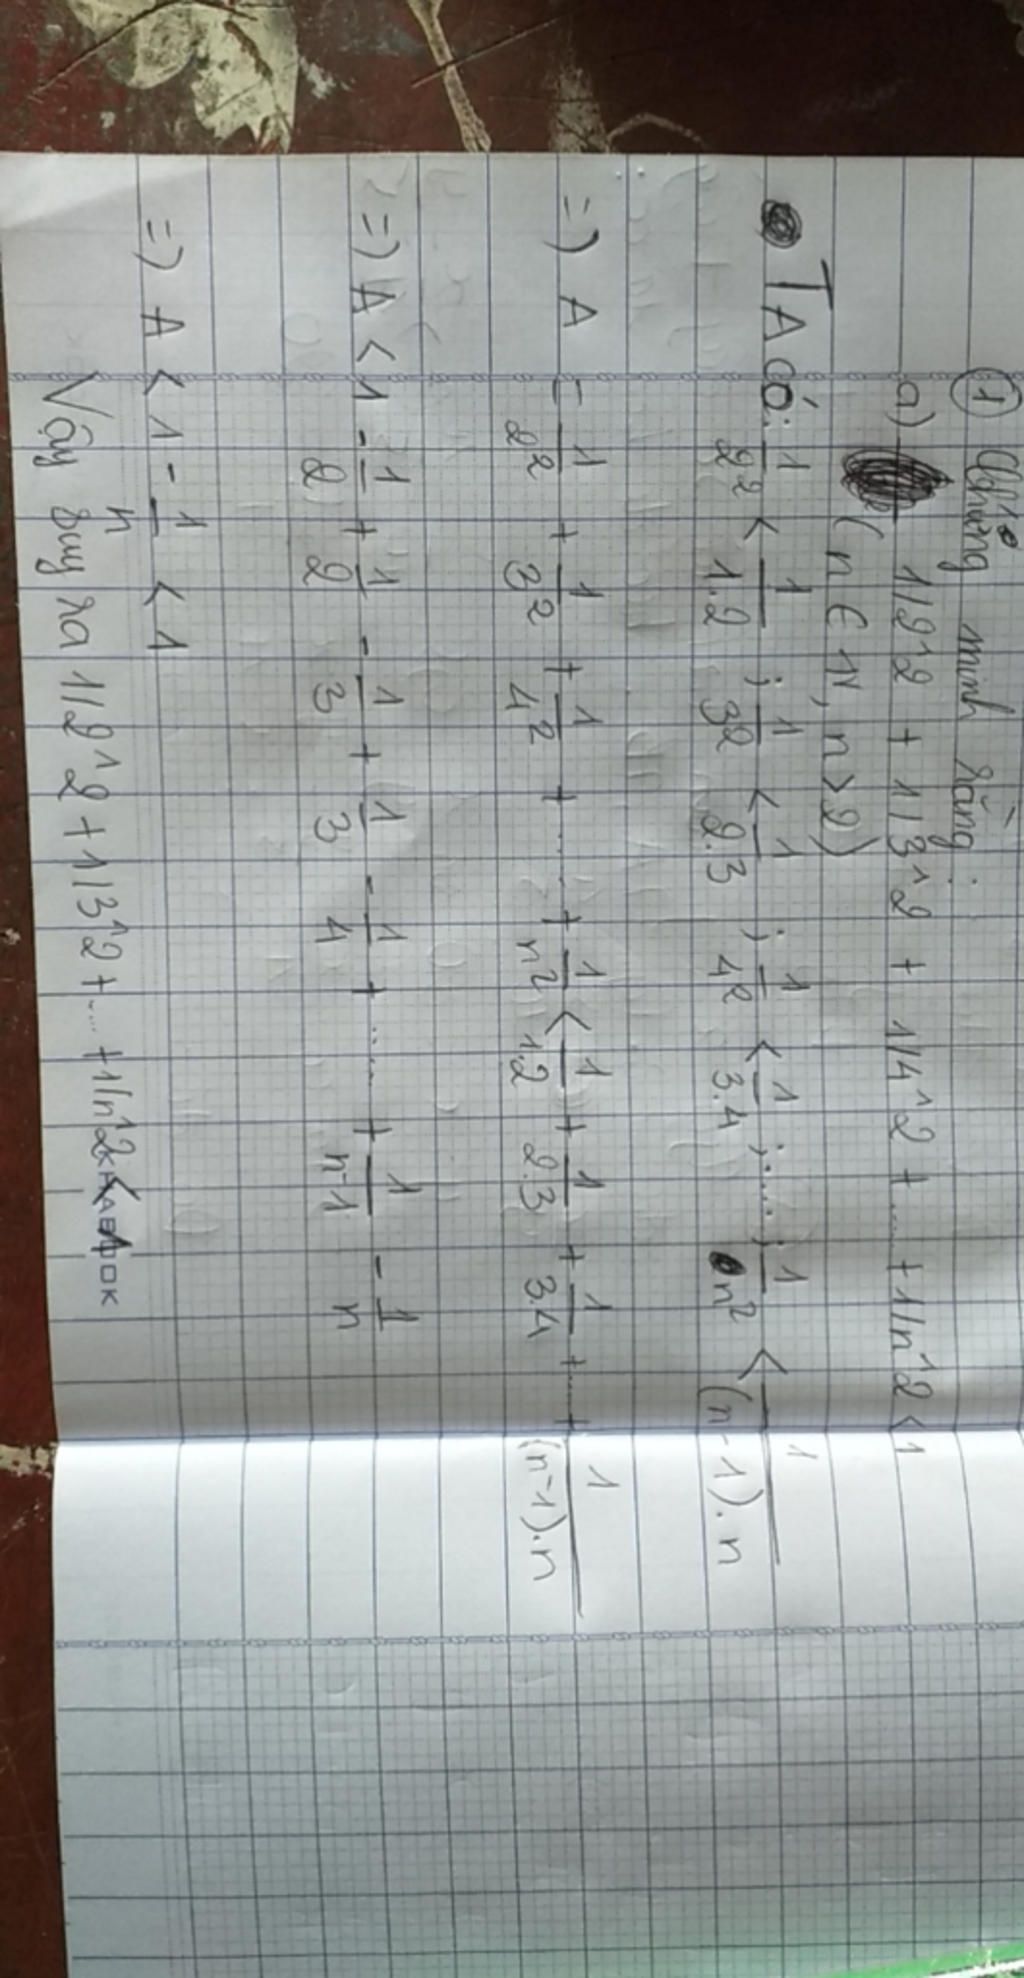 ① Chứng minh rằng:
a) 1/2^2 + 1/3^2 + 1/4^2 + .... + 1/n^2 < 1
(n ∈ N, n > 2)
TA có: 1/2² < 1/1.2 ; 1/3² < 1/2.3 ; 1/4² < 1/3.4 ; .... ; 1/n² < 1/(n-1).n
=) A = 1/2² + 1/3² + 1/4² + .... + 1/n² < 1/1.2 + 1/2.3 + 1/3.4 + .... + 1/(n-1).n
=) A < 1 - 1/2 + 1/2 - 1/3 + 1/3 - 1/4 + .... + 1/n-1 - 1/n
=) A < 1 - 1/n < 1
Vậy suy ra 1/2^2 + 1/3^2 + .... + 1/n^2 < 1